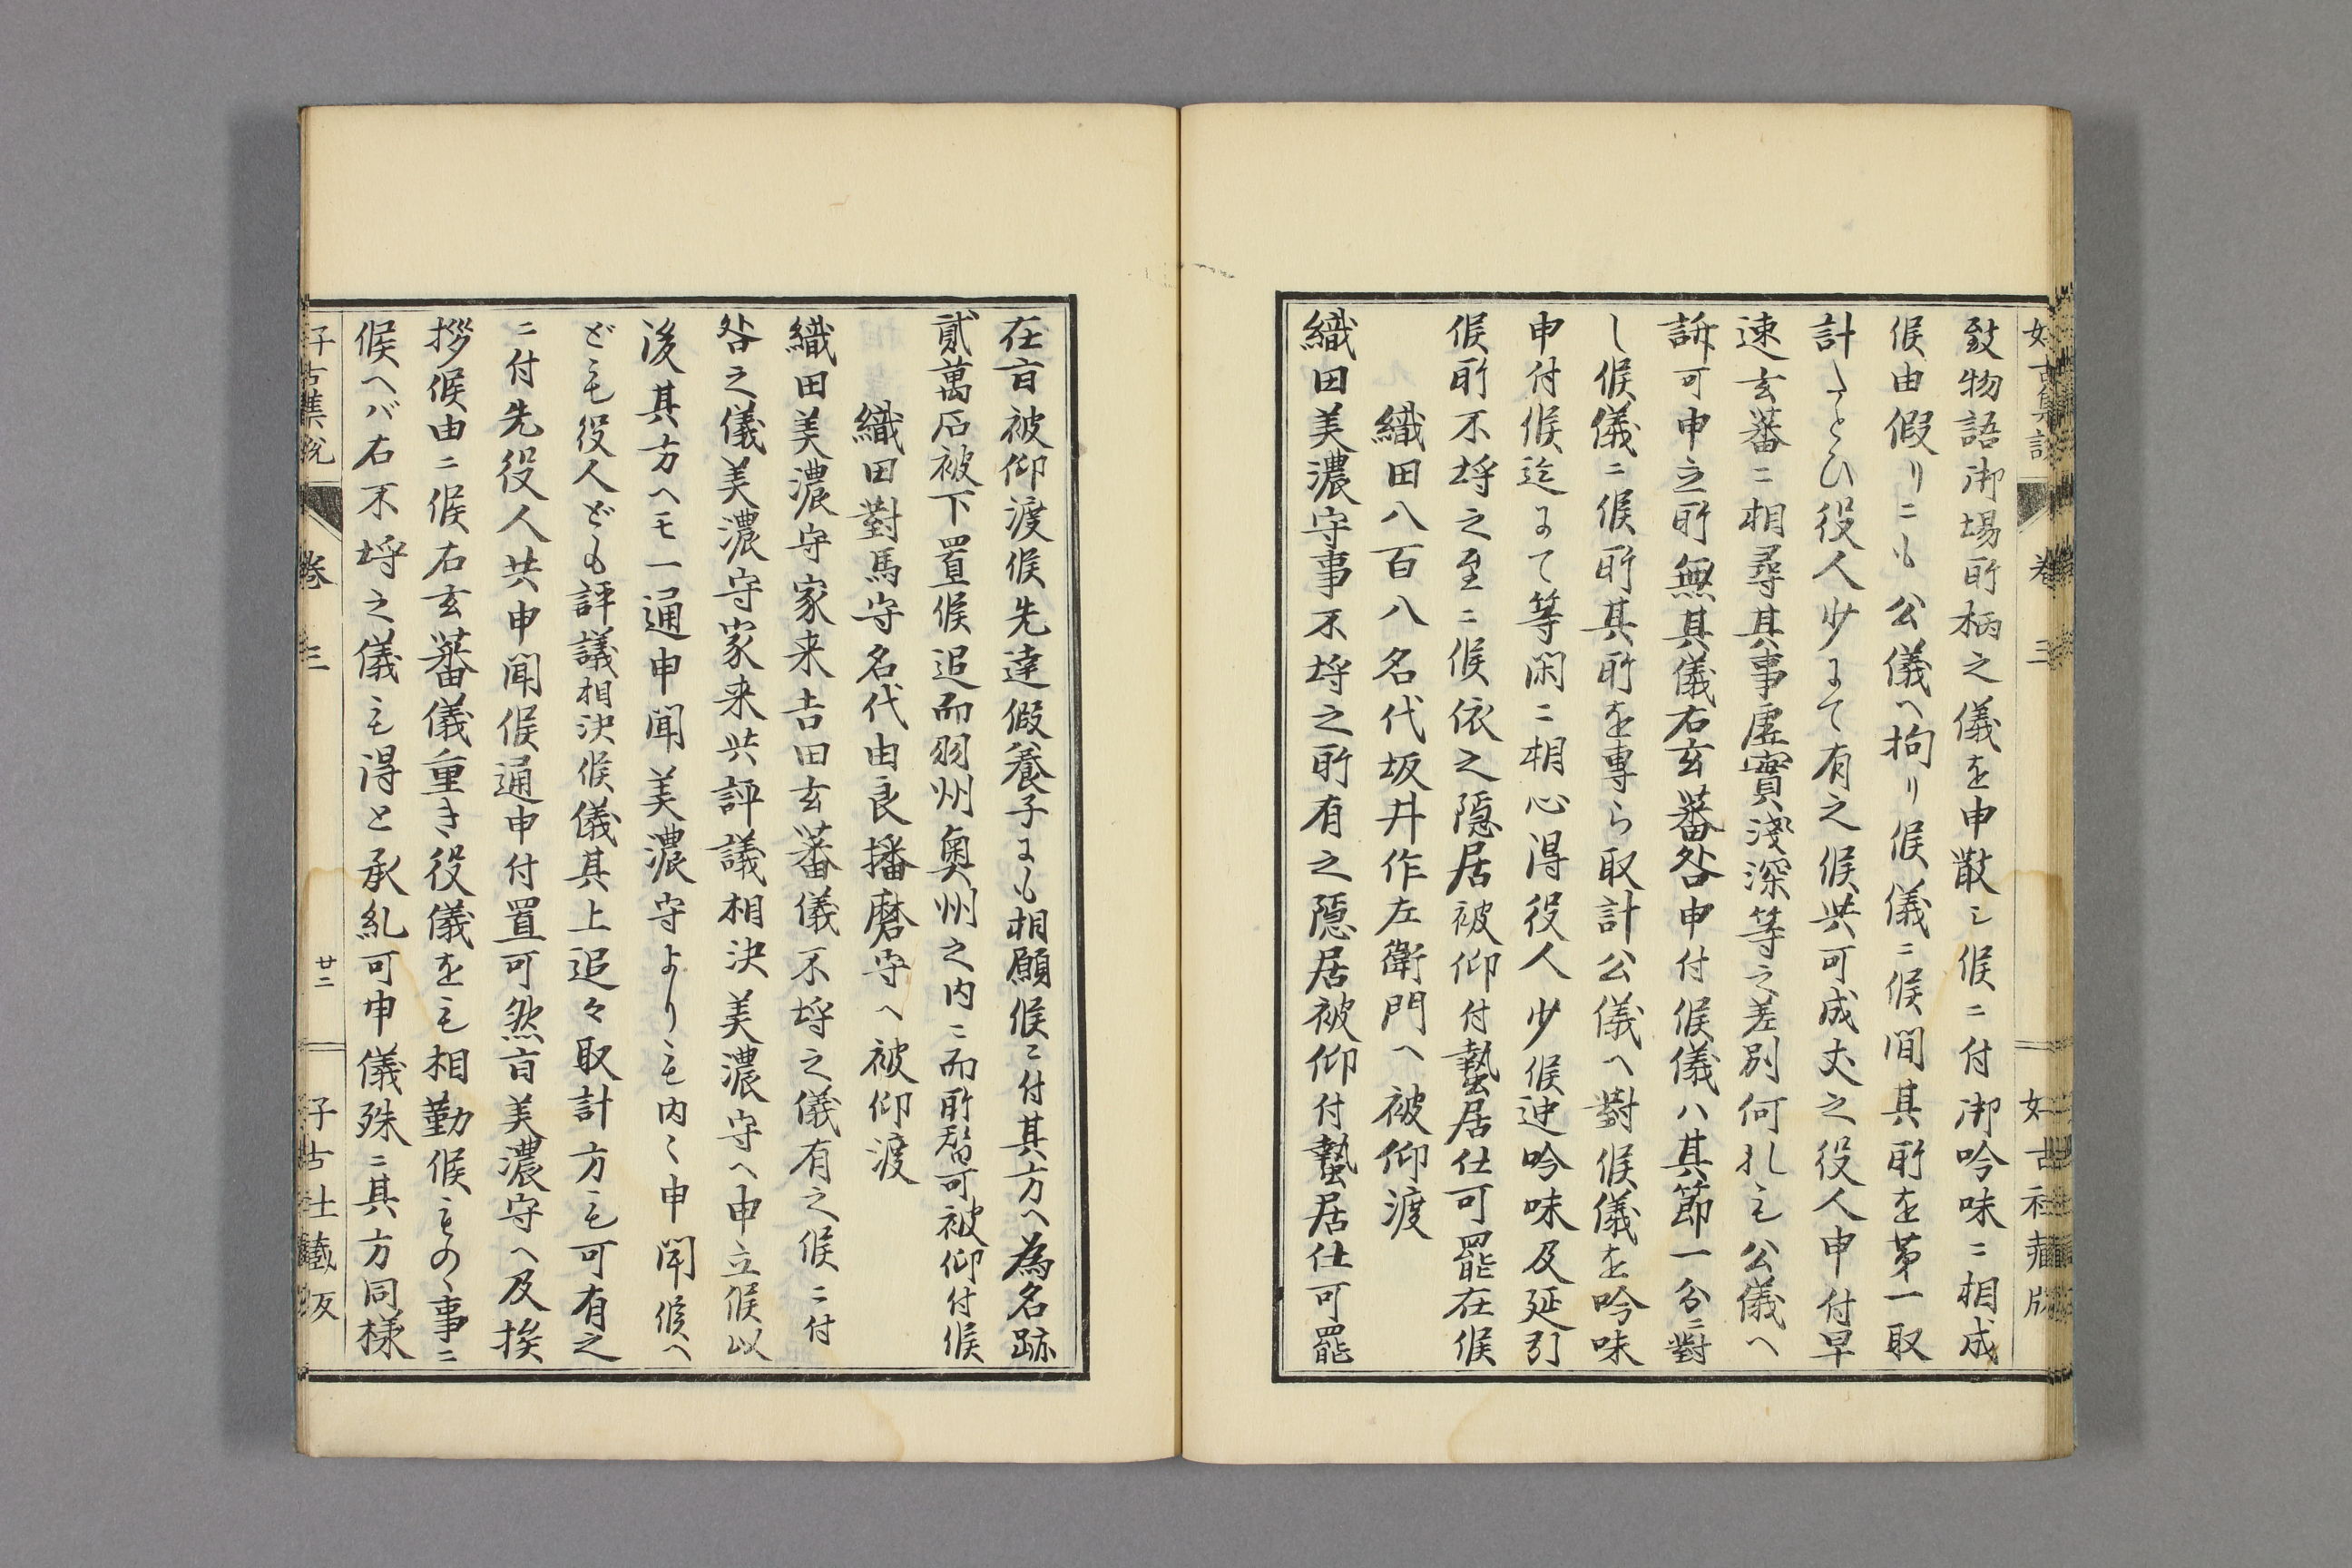 致物語御場所柄之儀を申散シ候ニ付御吟味ニ相成
候由假リニも公儀へ拘リ候儀ニ候間其所を第一取
計たとひ役人少まて有之候共可成丈之役人申付早
速玄蕃ニ相尋其事虚實淺深等之差別何れも公儀へ
訴可申之所無其儀右玄蕃咎申付候儀ハ其節一分ニ對
し候儀ニ候所其所を專ら取計公儀へ對候儀を吟味
申付候迄まて等閑ニ相心得役人少候迚吟味及延引
候所不埒之至ニ候依之隠居被仰付蟄居仕可罷在候
織田八百八名代坂井作左衛門へ被仰渡
織田美濃守事不埒之所有之隠居被仰付蟄居仕可罷
好古集説 卷三 好古社藏版
在旨被仰渡候先達假養子まも相願候ニ付其方へ為名跡
貳萬石被下置候追而羽州奥州之内ニ而所替可被仰付候
織田對馬守名代由良播磨守へ被仰渡
織田美濃守家来吉田玄蕃儀不埒之儀有之候ニ付
咎之儀美濃守家来共評議相決美濃守へ申立候以
後其方へモ一通申聞美濃守よりも内々申聞候へ
ども役人ども評議相決候儀其上追々取計方も可有之
ニ付先役人共申聞候通申付置可然旨美濃守へ及挨
拶候由ニ候右玄蕃儀重き役儀をも相勤候ものゝ事ニ
候へバ右不埒之儀も得と承糺可申儀殊ニ其方同様
好古集説 卷三 廿二 好古社藏版